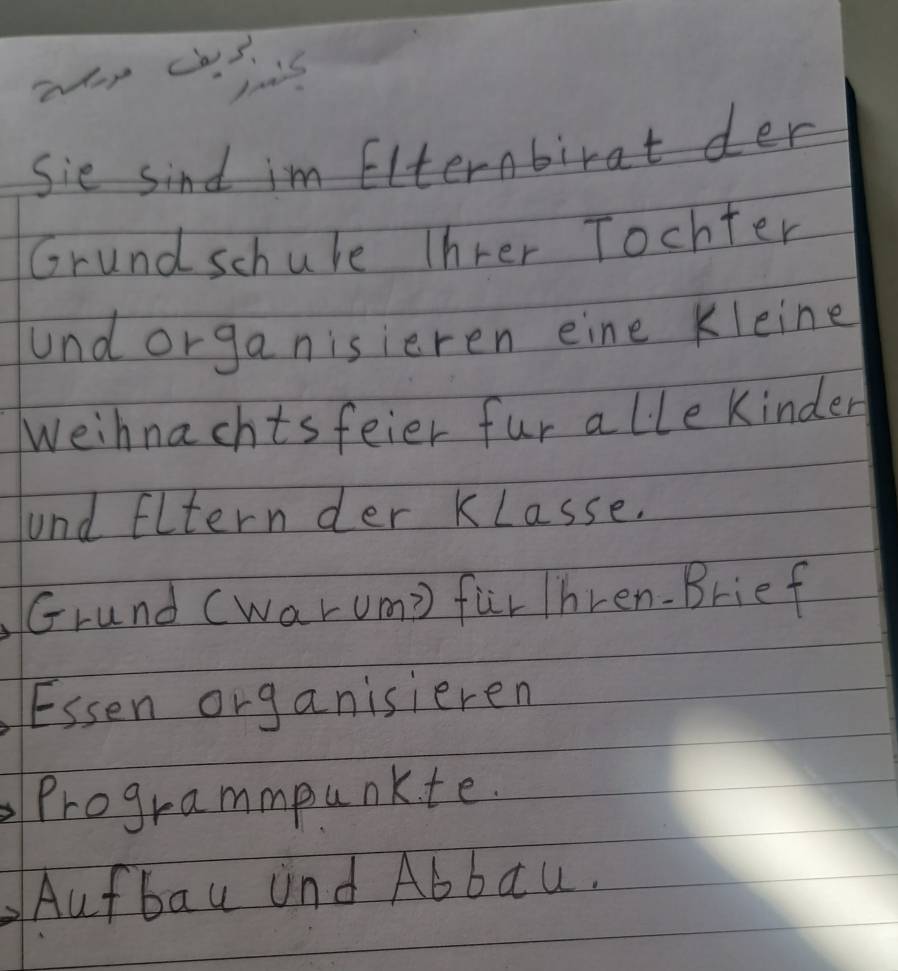 Sie sind im Elternbirat der
Grundschule Ihrer Tochter
und organisieren eine Kleine
Weihnachtsfeier fur alle Kinder
und Eltern der Klasse.
Grund (warum?) für Ihren-Brief
Essen organisieren
Programmpunkte.
Aufbau und Abbau.